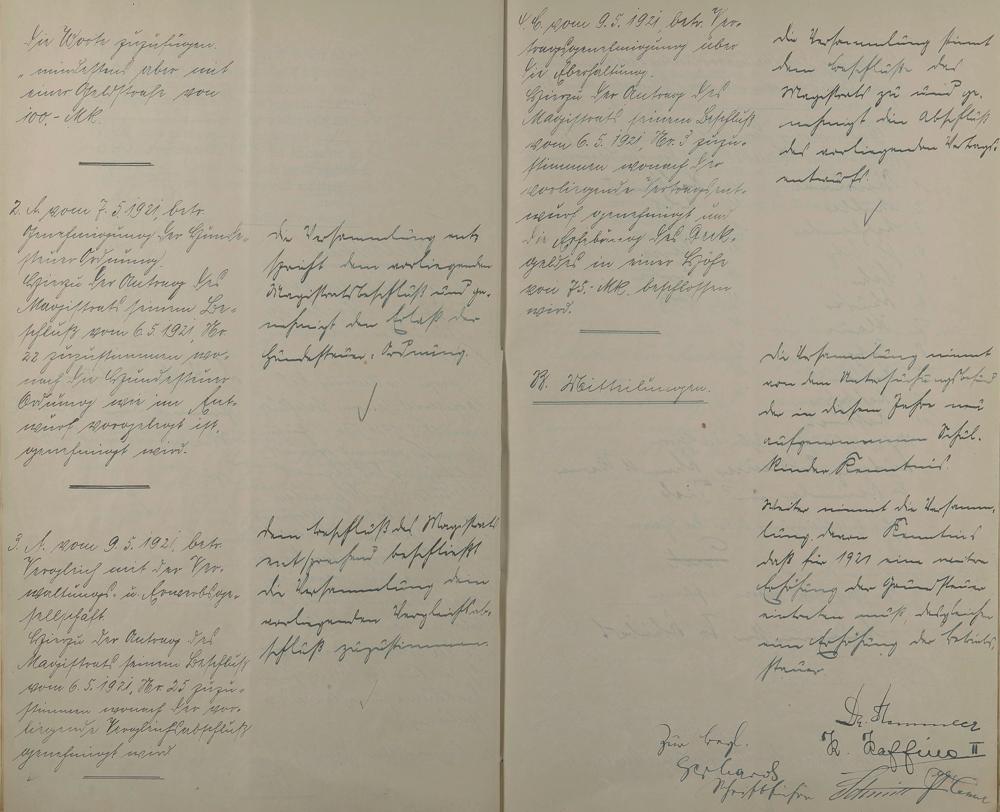 die Worte zuzufügen.
"mindestens aber mit
einer Geldstrafe von
100,- Mk.
2. A. vom 7.5.1921, betr.
Genehmigung der Hunde-
steuer Ordnung.
Hierzu der Antrag des
Magistrats seinem Be-
schluß vom 6.5.1921, Nr.
22 zuzustimmen wo-
nach die Hundesteuer
Ordnung wie im Ent-
wurf vorgelegt ist,
genehmigt wird.
Die Versammlung ent
spricht dem vorliegenden
Magistratsbeschluß und ge-
nehmigt den Erlaß der
Hundesteuer-Ordnung.
3. A. vom 9.5.1921, betr.
Vergleich mit der Ver-
waltungs- u. Erwerbsge-
sellschaft
Hierzu der Antrag des
Magistrats seinem Beschluß
vom 6.5.1921, Nr. 25 zuzu-
stimmen wonach der vor-
liegende Vergleichsabschluß
genehmigt wird
Dem Beschluß des Magistrats
entsprechend beschließt
die Versammlung dem
vorliegenden Vergleichsab-
schluß zuzustimmen.
4. A. vom 9.5.1921, betr. Ver-
tragsgenehmigung über
die
Hierzu der Antrag des
Magistrats seinem Beschluß
vom 6.5.1921, Nr. 3 zuzu-
stimmen wonach der
vorliegende Vertragsent-
wurf genehmigt und
die Erhebung des Deck-
geldes in einer Höhe
von 75,- Mk. beschlossen
wird.
Die Versammlung stimmt
dem Beschlusse des
Magistrats zu und ge-
nehmigt den Abschluß
des vorliegenden Vertrags-
entwurfs.
B. Mitteilungen.
Die Versammlung nimmt
von dem Untersuchungsbefund
der in diesem Jahre neu
aufgenommenen Schul-
kinder Kenntnis.
Weiter nimmt die Versamm-
lung davon Kenntnis
daß für 1921 eine weitere
Erhöhung der Grundsteuer
eintreten muß, desgleichen
eine Erhöhung der Betriebs-
steuer.
Zur Begl.
Gerhards
Schriftführer
Dr.
K. Zaffino II
Schmitt